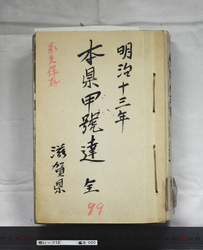 明治十三年
本県甲號達 全
滋賀県
永久保存
99